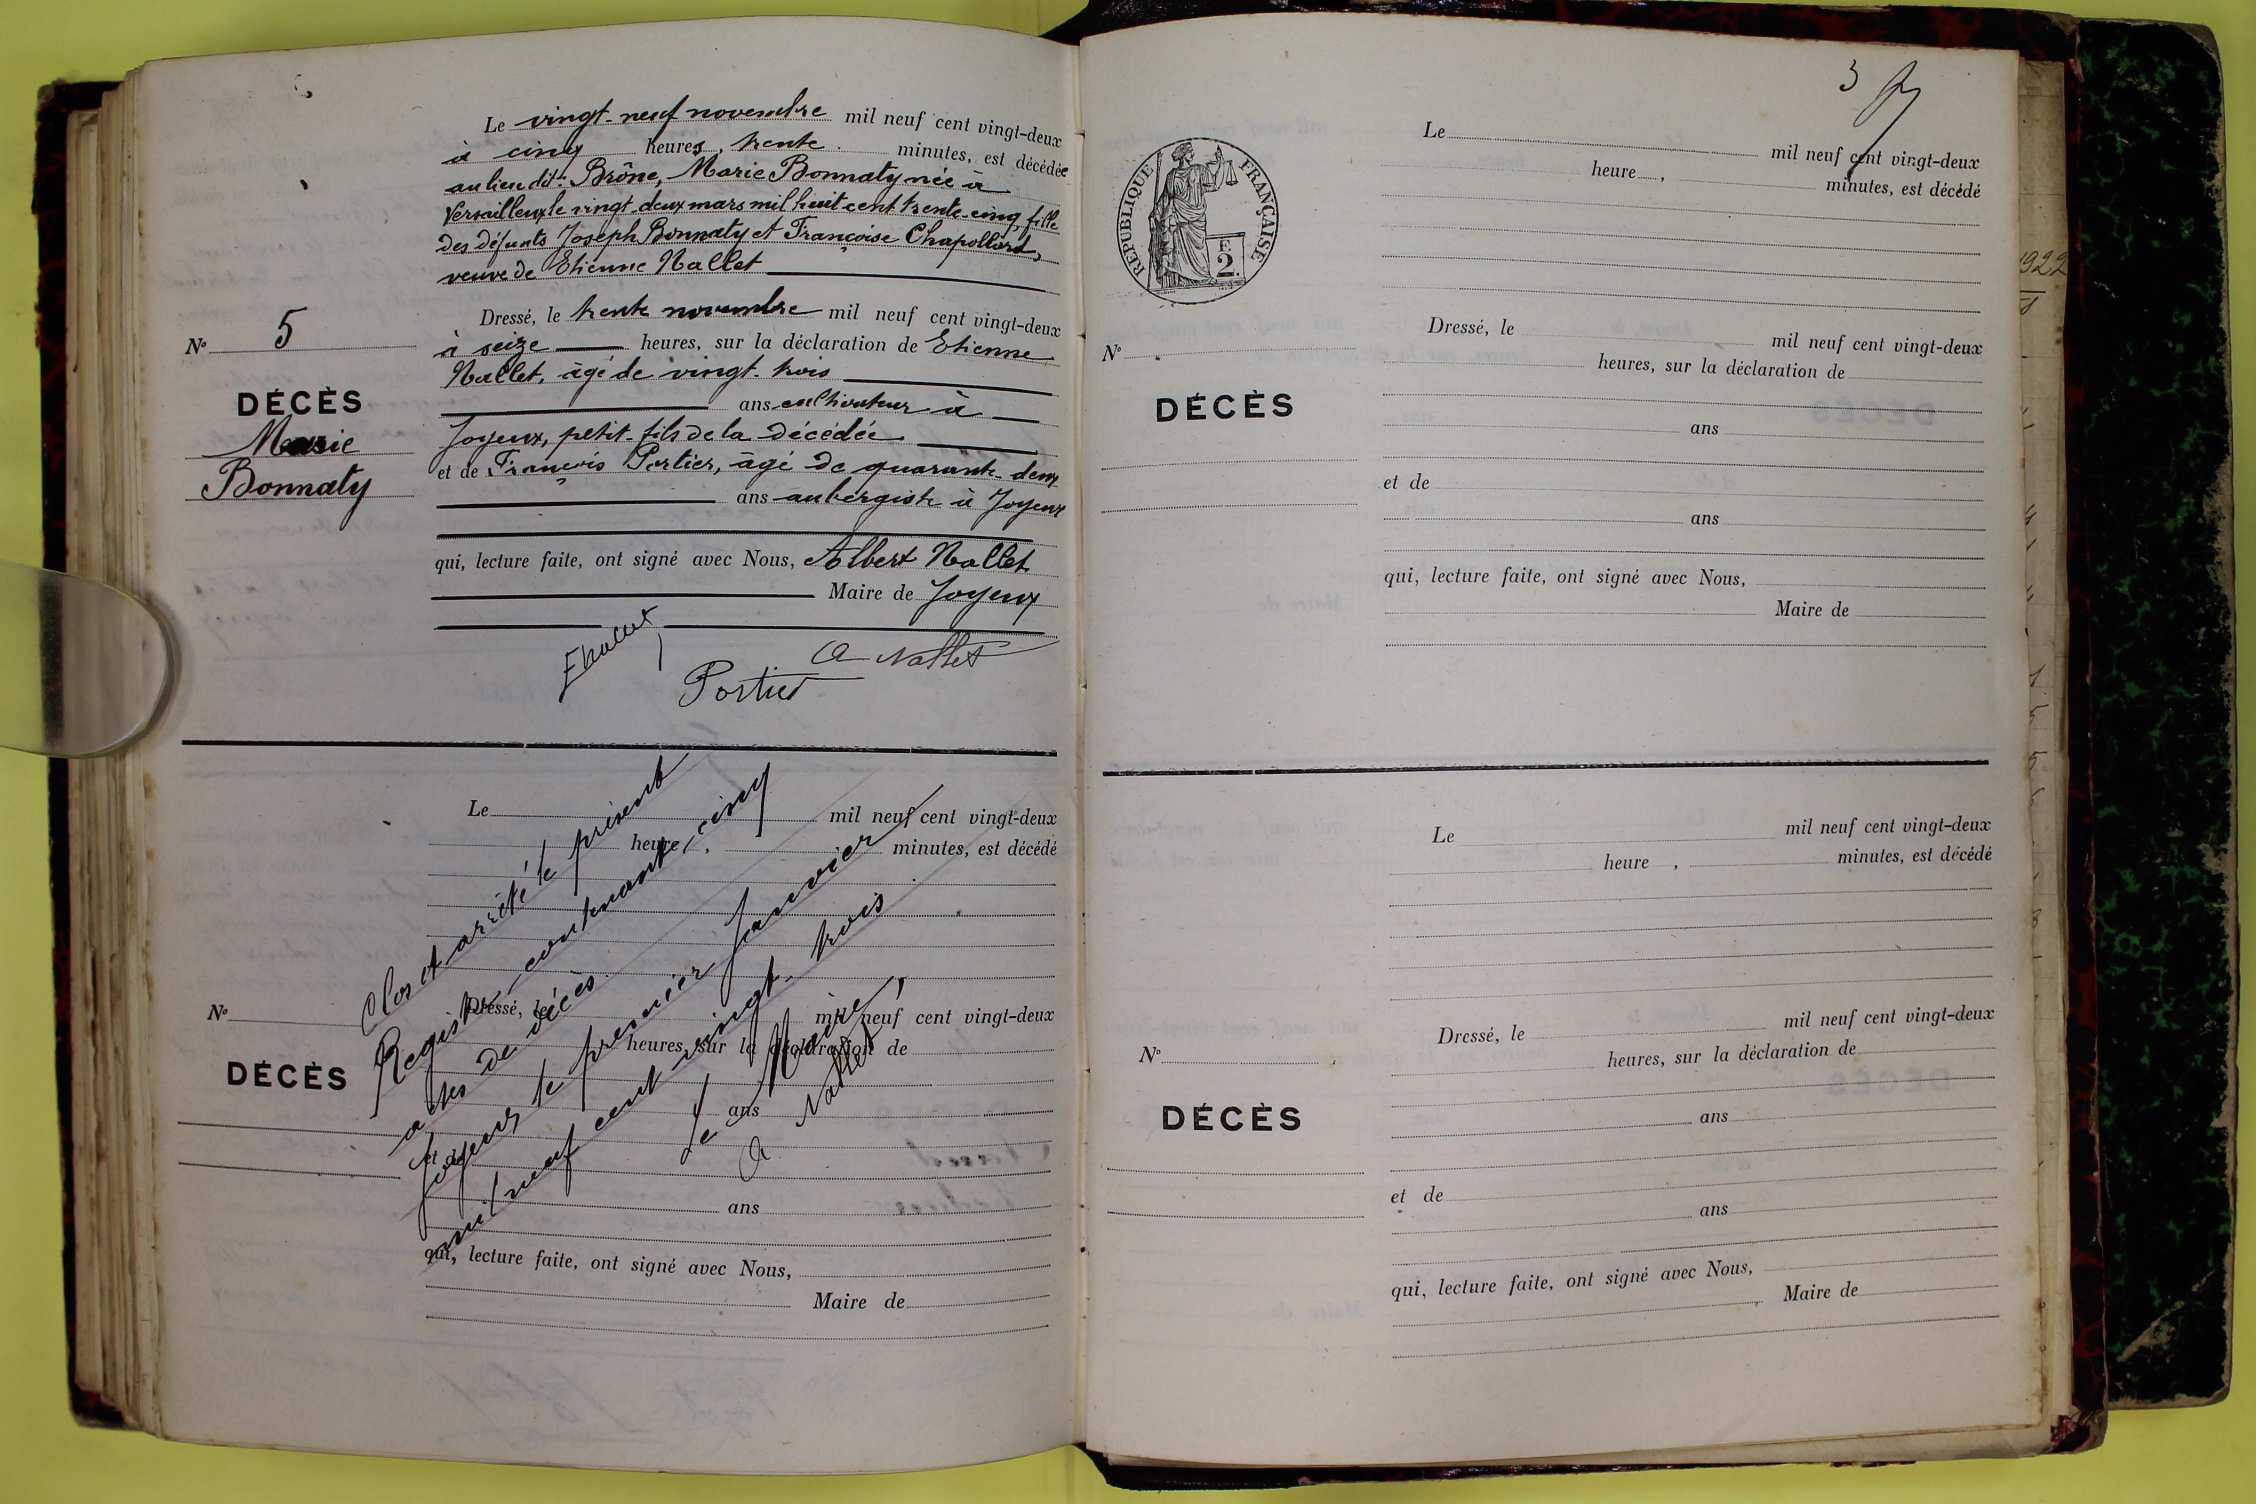 Le vingt-neuf novembre mil neuf cent vingt-deux
à cinq heures, trente minutes, est décédée
au lieu dit: Brône, Marie Bonnaty née à
Versailleux le vingt-deux mars mil huit cent trente-cinq, fille
des défunts Joseph Bonnaty et Françoise Chapolland,
veuve de Etienne Nallet
Dressé, le trente novembre mil neuf cent vingt-deux
à seize heures, sur la déclaration de Etienne
Nallet, âgé de vingt-trois
ans cultivateur à
Joyeux, petit-fils de la décédée
et de François Portier, âgé de quarante-deux
ans aubergiste à Joyeux
qui, lecture faite, ont signé avec Nous, Albert Nallet
Maire de Joyeux
E Nallet
A Nallet
Portier
Nº 5
DÉCÈS
Marie
Bonnaty
Le mil neuf cent vingt-deux
heure , minutes, est décédé
Dressé, le mil neuf cent vingt-deux
heures, sur la déclaration de
ans
et de
ans
qui, lecture faite, ont signé avec Nous,
Maire de
Nº
DÉCÈS
Clos et arrêté le présent
Registre contenant cinq
actes de décès.
Joyeux le premier Janvier
mil neuf cent vingt-trois
Le Maire,
A Nallet
3
RÉPUBLIQUE FRANÇAISE
F.
2.
Le mil neuf cent vingt-deux
heure , minutes, est décédé
Dressé, le mil neuf cent vingt-deux
heures, sur la déclaration de
ans
et de
ans
qui, lecture faite, ont signé avec Nous,
Maire de
Nº
DÉCÈS
Le mil neuf cent vingt-deux
heure , minutes, est décédé
Dressé, le mil neuf cent vingt-deux
heures, sur la déclaration de
ans
et de
ans
qui, lecture faite, ont signé avec Nous,
Maire de
Nº
DÉCÈS
1922